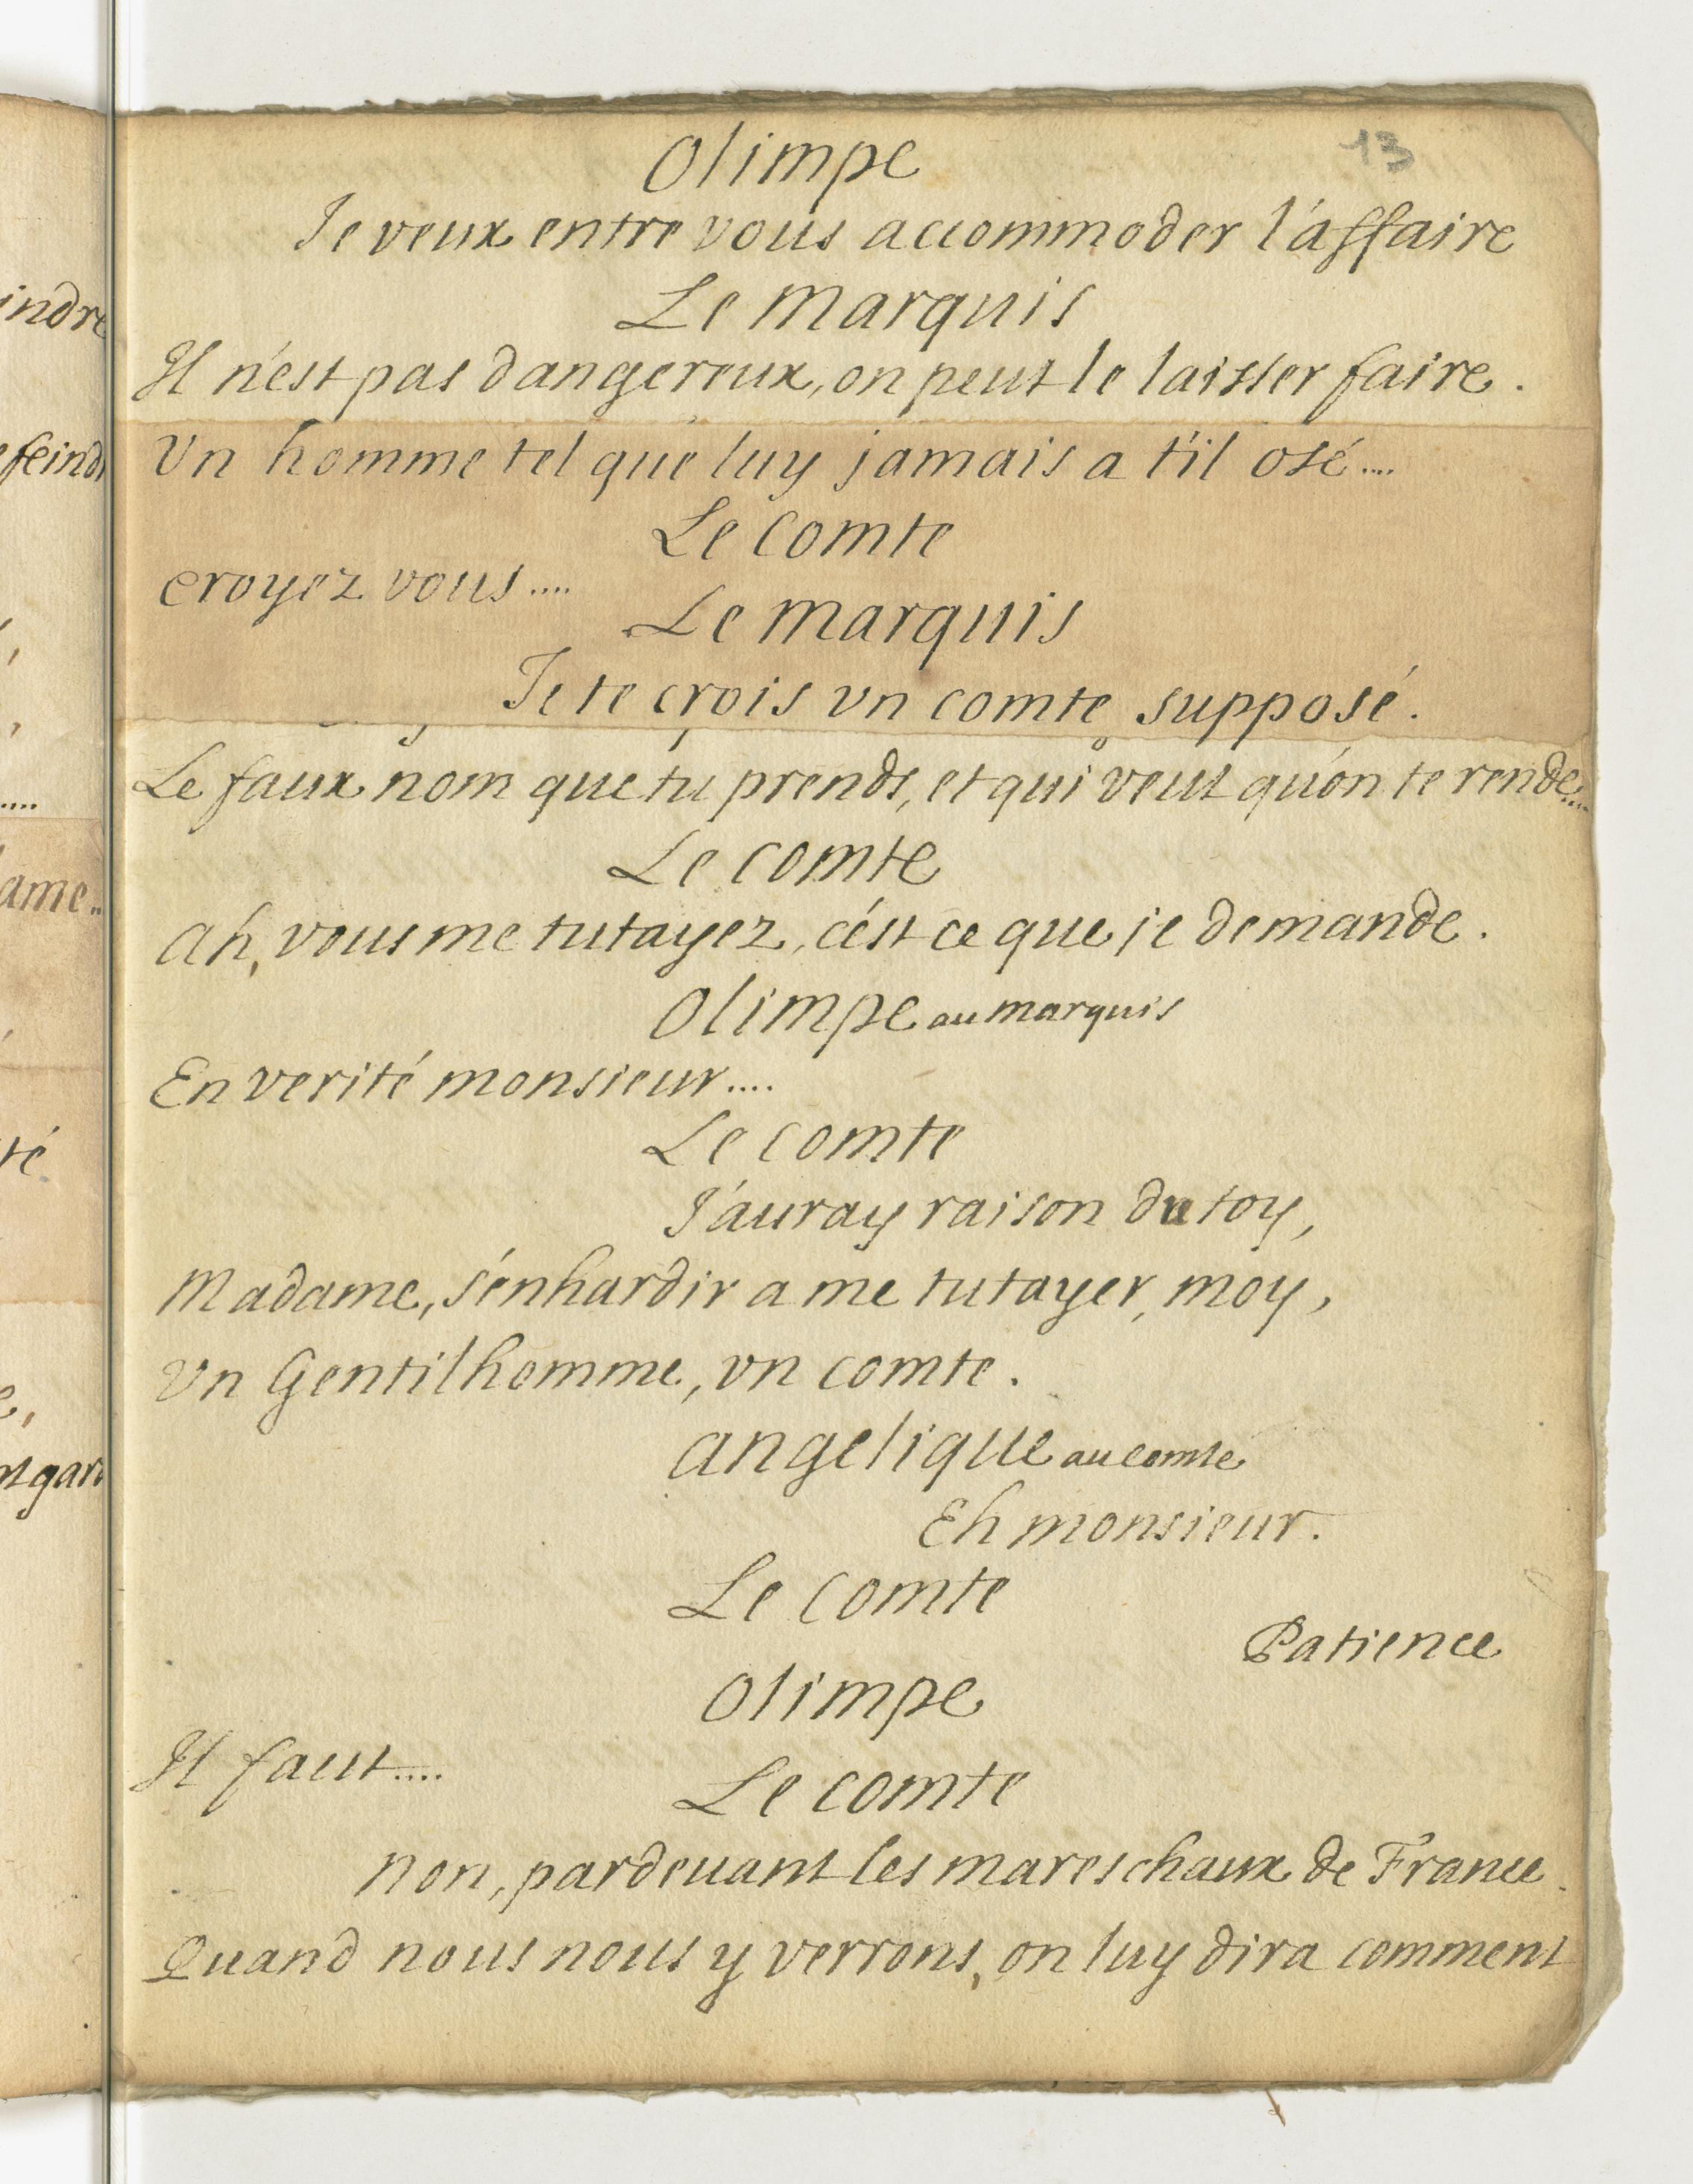 13
Olimpe
Je veux entre vous accommoder l'affaire
Le Marquis
Il n'est pas dangereux, on peut le laisser faire.
Un homme tel que luy jamais a t'il osé....
Le Comte
croyez vous....
Le Marquis
Je te crois un comte supposé.
Le faux nom que tu prends, et qui veut qu'on te rende....
Le Comte
Ah, vous me tutayez, c'est ce que je demande.
Olimpe au marquis
En verité monsieur....
Le Comte
J'auray raison de toy,
Madame, s'enhardir a me tutayer, moy,
Un Gentilhomme, un comte.
Angelique au comte
Eh monsieur.
Le Comte
Patience
Olimpe
Il faut....
Le Comte
Non, pardevant les mareschaux de France.
Quand nous nous y verrons, on luy dira comment
indre
feind
....
ame..
té
e,
gar